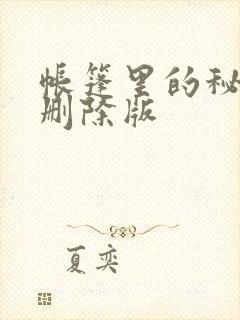 帐篷里的秘
删除版
夏奕